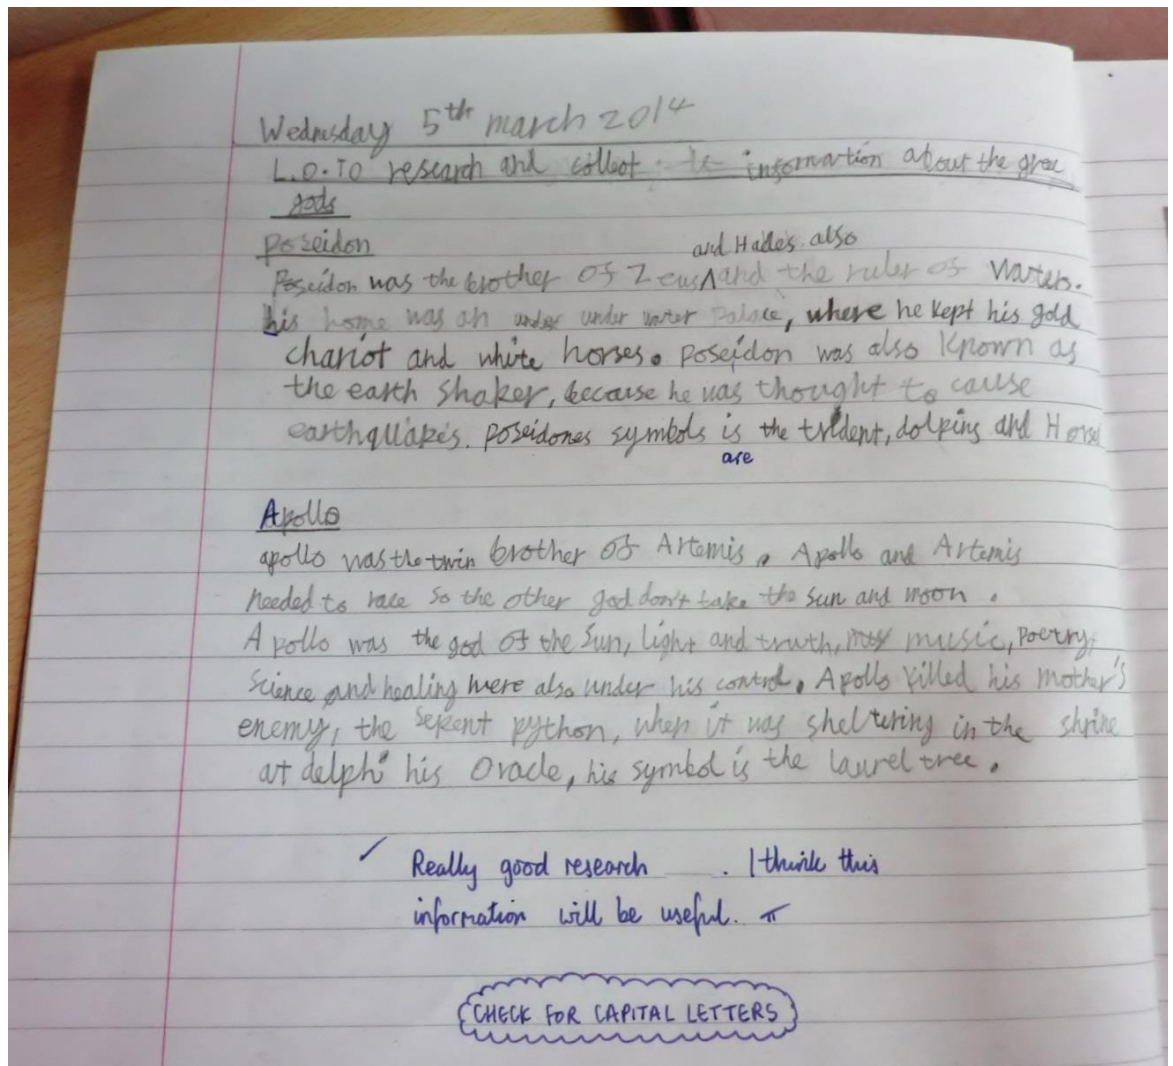 Wednesday 5th march 2014
L.O. To research and collect information about the gree
gods
Poseidon
and Hades also
Poseidon was the brother of Zeus ∧ and the ruler of Waters.
his home was an under under water Palace, where he kept his gold
chariot and white horses. Poseidon was also Known as
the earth shaker, because he was thought to cause
earthquakes. Poseidones symbols is the trident, dolpins and Horses
are
Apollo
apollo was the twin brother of Artemis. Apollo and Artemis
needed to race so the other god don't take the sun and moon.
Apollo was the god of the Sun, light and truth, music, Poetry,
Science and healing were also under his control. Apollo killed his mother's
enemy, the serent python, when it was sheltering in the shrine
at delphi his Oracle, his symbol is the laurel tree.
✓ Really good research . I think this
information will be useful.
CHECK FOR CAPITAL LETTERS